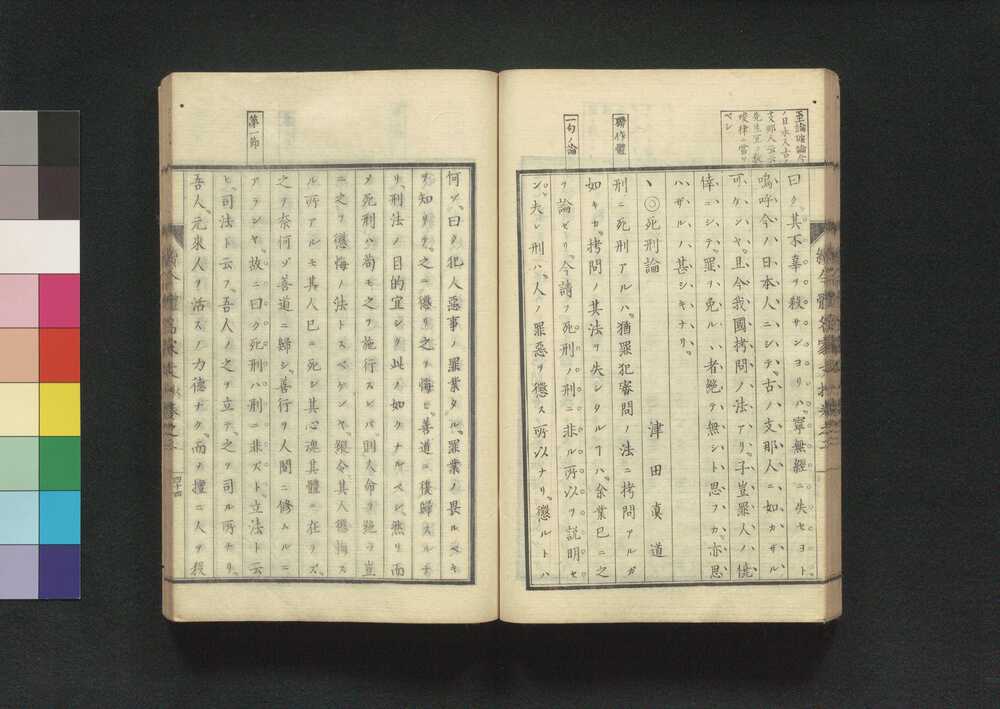 至論確論今
ノ日本人古ノ
支那人云云
ベシ
曰ク、其不辜ヲ殺サンヨリハ、寧無經ニ失セヨト、
嗚呼今ノ日本人ニシテ、古ノ支那人ニ如カザル
可ケンヤ、且今我國拷問ノ法アリ、子豈罪人ノ僥
倖ニシテ罪ヲ免ル丶者絶テ無シト思フカ、亦思
ハザルノ甚シキナリ、
聯作體
◎死刑論 津田眞道
刑ニ死刑アルハ、猶罪犯審問ノ法ニ拷問アルガ
如キカ、拷問ノ其法ヲ失シタルヿハ、余業已ニ之
一句ノ論
ヲ論ゼリ、今請フ死刑ノ刑ニ非ル所以ヲ説明セ
ン、夫レ刑ハ、人ノ罪惡ヲ懲ス所以ナリ、懲ルトハ
何ゾ、曰ク犯人惡事ノ罪業タル、罪業ノ畏ルベキ
ヲ知リテ、之ニ懲リ之ヲ悔ヒ、善道ニ復歸スルナ
リ、刑法ノ目的宜シク此ノ如クナルベシ、然リ而
メ死刑ハ、苟モ之ヲ施行スレバ則人命ヲ絶ツ、豈
ニ之ヲ懲悔ノ法トスベケンヤ、縱令其人懲悔ス
ル所アルモ其人已ニ死シ其心魂其體ニ在ラズ、
之ヲ奈何ゾ善道ニ歸シ、善行ヲ人間ニ修ムルニ
第一節
アランヤ、故ニ曰ク死刑ハ刑ニ非ズト、立法ト云
ヒ、司法ト云フ、吾人ノ之ヲ立テ、之ヲ司ル所ナリ、
吾人元來人ヲ活スノ力德ナク、而ヲ擅ニ人ヲ殺
四十四